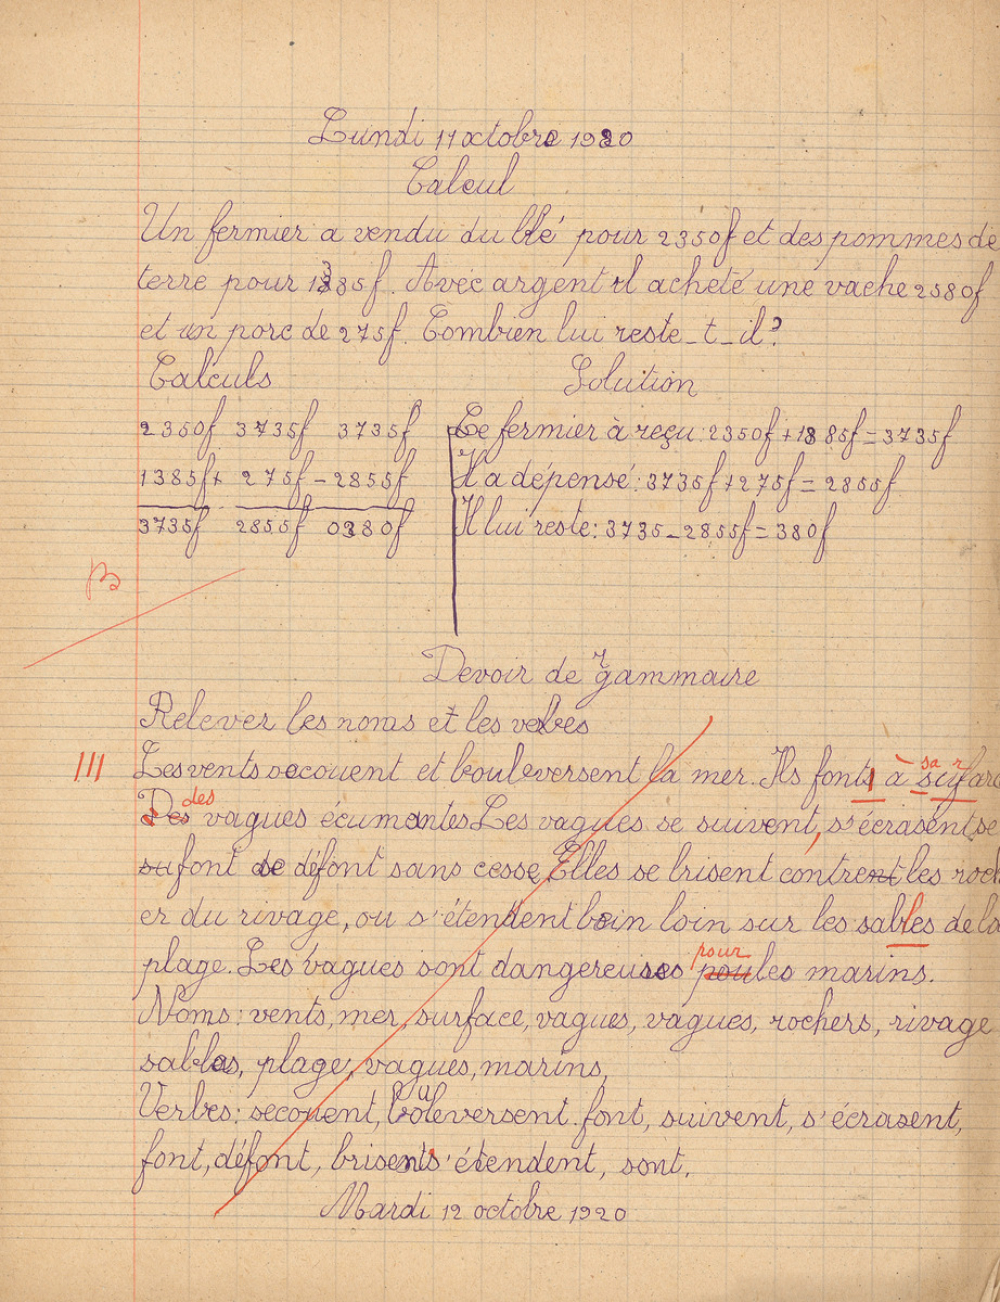 Lundi 11 octobre 1920
Calcul
Un fermier a vendu du blé pour 2350f et des pommes de
terre pour 1385f. Avec argent il acheté une vache 2580f
et un porc de 275f. Combien lui reste_t_il?
Calculs Solution
2350f 3735f 3735f Le fermier à reçu: 2350f+1385f=3735f
1385f+ 275f - 2855f Il a dépensé: 3735f+275f=2855f
3735f 2855f 0380f Il lui reste: 3735-2855f=380f
B
Devoir de grammaire
Relever les noms et les verbes
III Les vents secouent et bouleversent la mer. Ils font à sa surface
Des des vagues écumantes Les vagues se suivent, s'écrasent se
su font se défont sans cesse, Elles se brisent contrent les roch
er du rivage, ou s'étendent bein loin sur les sables de la
plage. Les vagues sont dangereuses pou pour les marins.
Noms: vents, mer, surface, vagues, vagues, rochers, rivage
sables, plage, vagues, marins,
Verbes: secouent, bouleversent. font, suivent, s'écrasent,
font, défont, brisent s'étendent, sont.
Mardi 12 octobre 1920